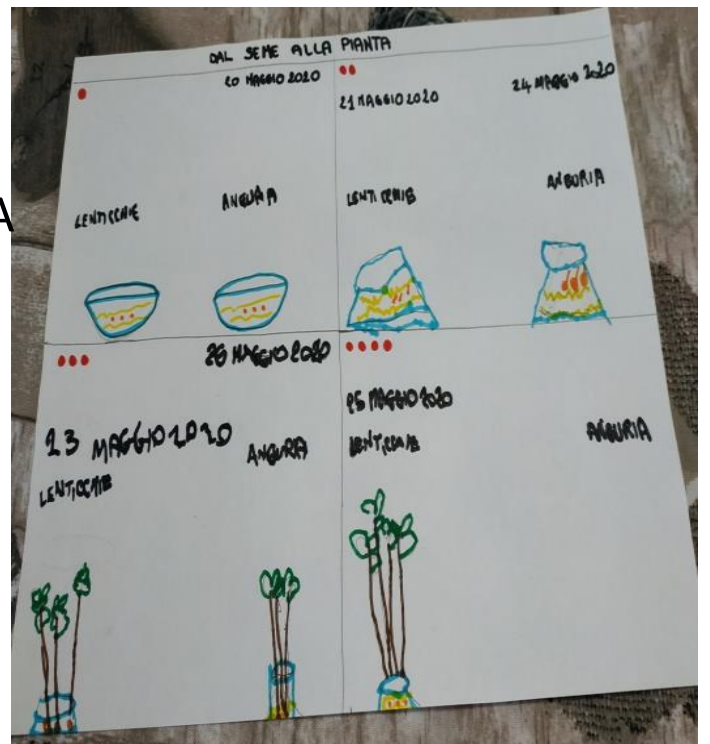 A
DAL SEME ALLA PIANTA
20 MAGGIO 2020
LENTICCHIE
ANGURIA
21 MAGGIO 2020
24 MAGGIO 2020
LENTICCHIE
ANGURIA
26 MAGGIO 2020
23 MAGGIO 2020
ANGURIA
LENTICCHIE
25 MAGGIO 2020
LENTICCHIE
ANGURIA